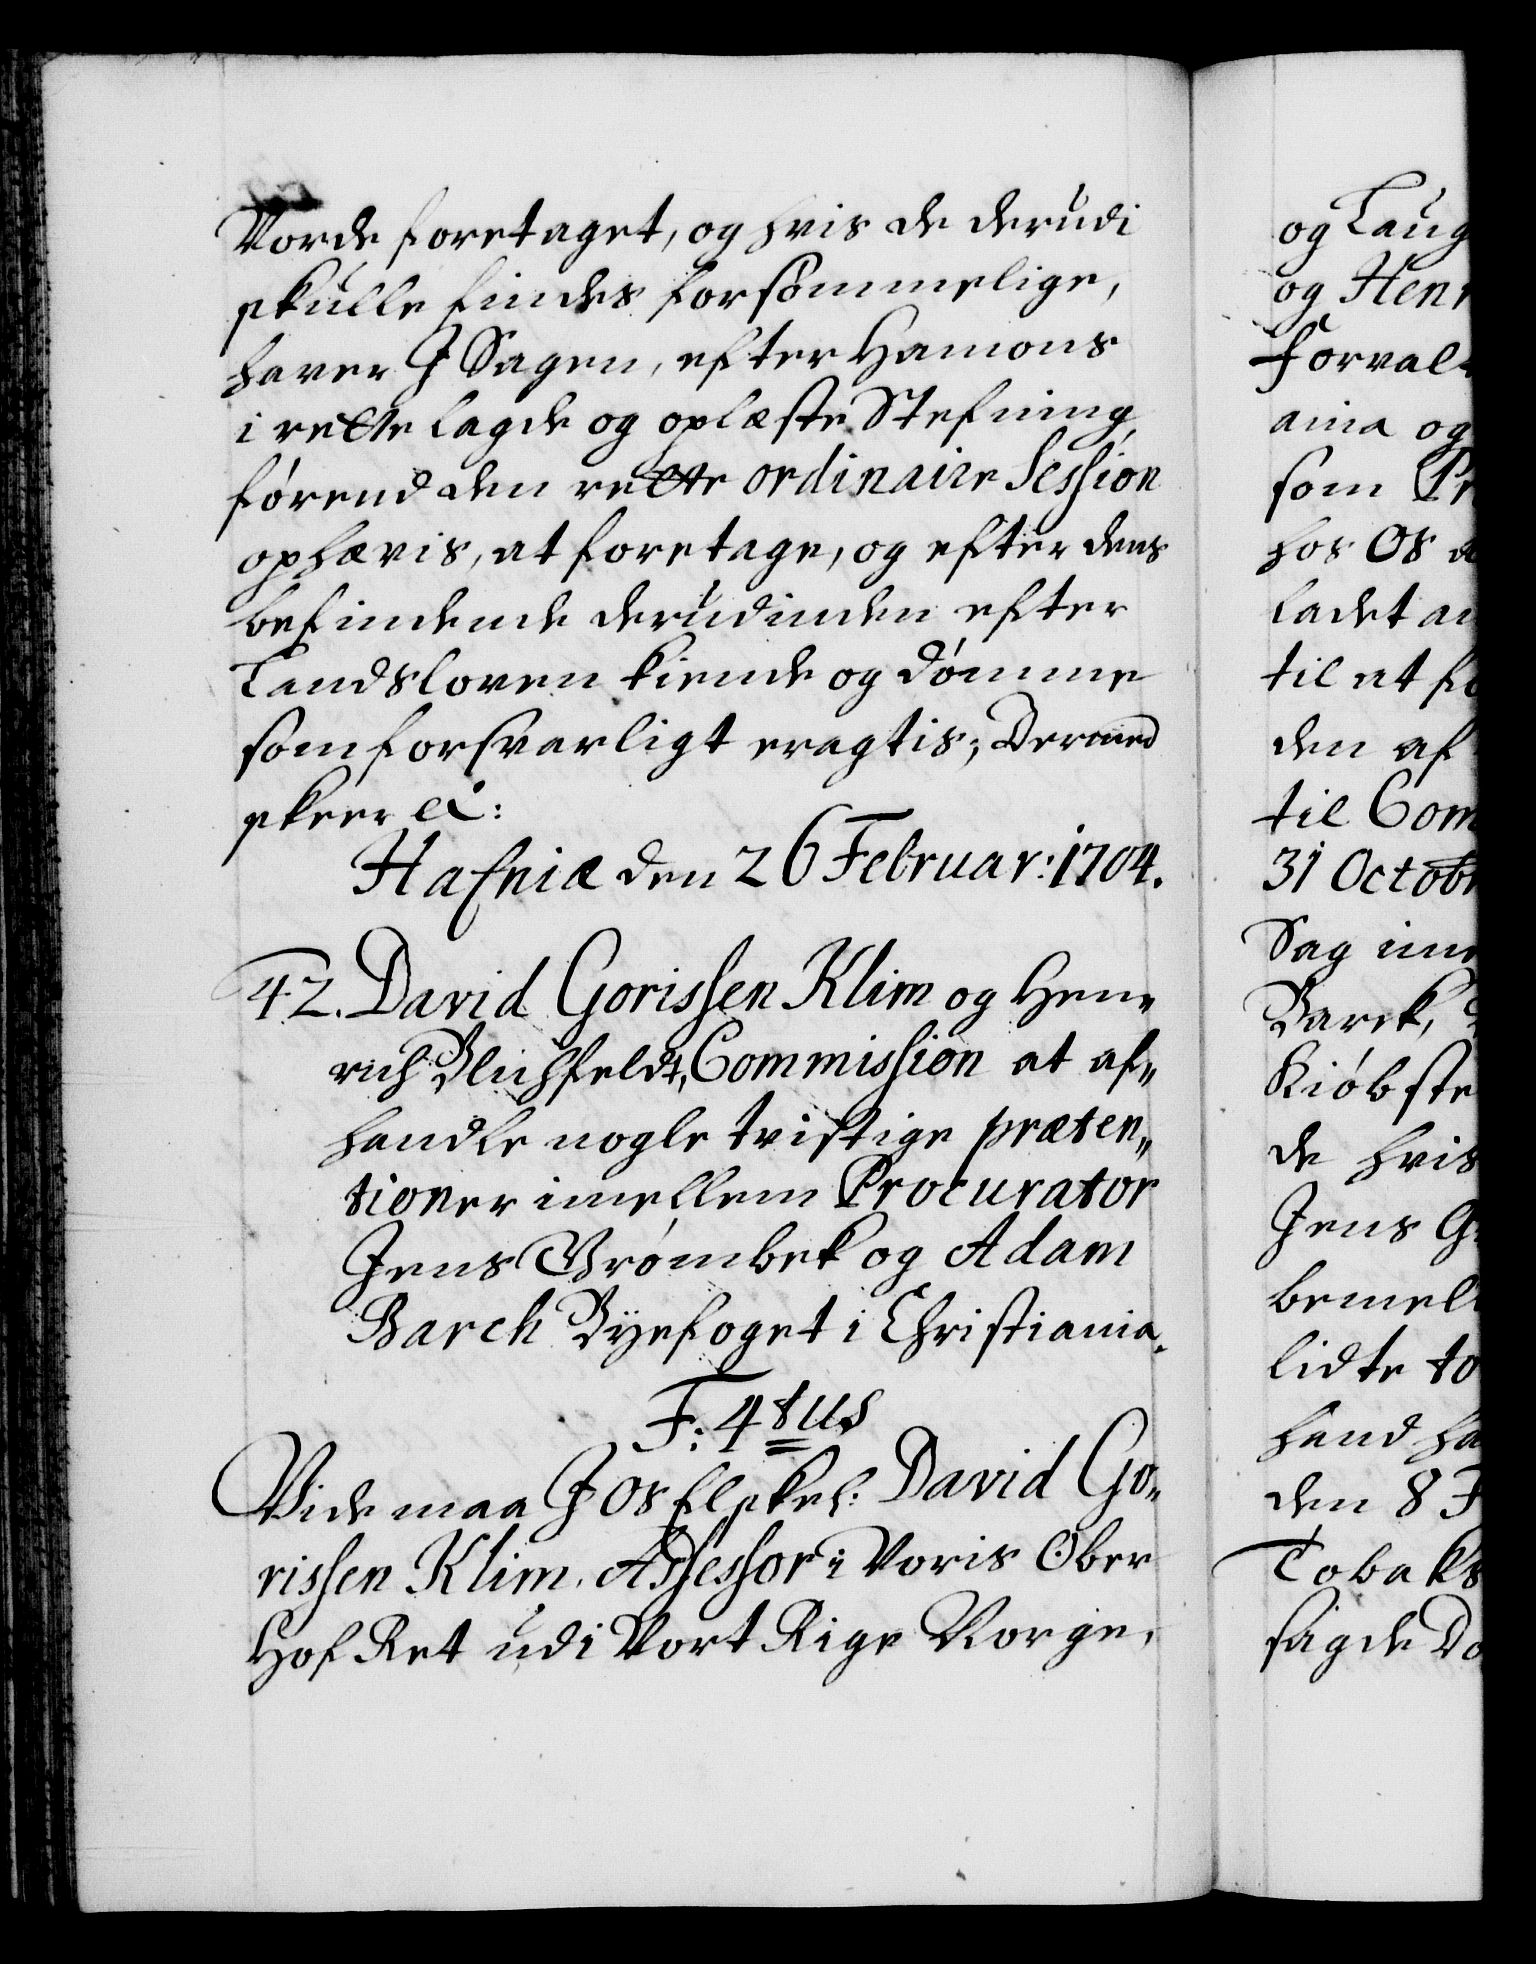 Vorde foretaget, og hvis de derudi
skulle findes forsømmelige,
haver I Sagen, efter Hamons
i rette lagde og oplæste Stefning
førend den rette ordinaire Session
ophævis, at foretage, og efter dens
befindende derudinden efter
Landsloven kiende og dømme
som forsvarligt eragtis; Dermed
skeer etc:
Hafniæ den 26 Februar: 1704.
42. David Gorissen Klim og Hen„
rich Blichfeldt, Commission at af„
handle nogle tvistige præten„
tioner imellem Procurator
Jens Grømbek og Adam
Barch Byefoget i Christiania.
F: 4tus
Vide maa I Os Elskel: David Go„
rissen Klim, Assessor i Voris Ober
Hof Ret udi Vort Rige Norge,
og Laug
og Hen
Forval
ania og
som Pr
hos Os
ladet an
til at fo
den af
til Com
31 Octobr
Sag im
Barck,
Kiøbste
de hvis
Jens G
bemel
lidte to
hand ha
den 8 F
Tobaks
sagde Do